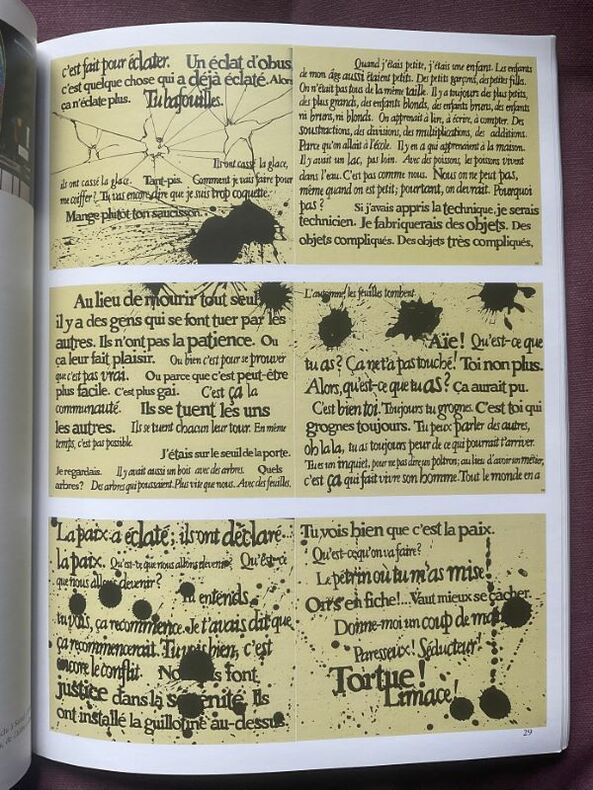 c'est fait pour éclater. Un éclat d'obus
c'est quelque chose qui a déjà éclaté. Alors
ça n'éclate plus. Tu bafouilles.
Ils ont cassé la glace,
ils ont cassé la glace. Tant-pis. Comment je vais faire pour
me coiffer? Tu vas encore dire que je suis trop coquette.
Mange plutôt ton saucisson.
Quand j'étais petite, j'étais une enfant. Les enfants
de mon âge aussi étaient petits. Des petits garçons, des petites filles.
On n'était pas tous de la même taille. Il y a toujours des plus petits,
des plus grands, des enfants blonds, des enfants bruns, des enfants
ni bruns, ni blonds. On apprenait à lire, à écrire, à compter. Des
soustractions, des divisions, des multiplications, des additions.
Parce qu'on allait à l'école. Il y en a qui apprenaient à la maison.
Il y avait un lac, pas loin. Avec des poissons, les poissons vivent
dans l'eau. C'est pas comme nous. Nous on ne peut pas,
même quand on est petit; pourtant, on devrait. Pourquoi
pas?
Si j'avais appris la technique, je serais
technicien. Je fabriquerais des objets. Des
objets compliqués. Des objets très compliqués,
Au lieu de mourir tout seul
il y a des gens qui se font tuer par les
autres. Ils n'ont pas la patience. Ou
ça leur fait plaisir. Ou bien c'est pour se prouver
que c'est pas vrai. Ou parce que c'est peut-être
plus facile. C'est plus gai. C'est ça la
communauté. Ils se tuent les uns
les autres. Ils se tuent chacun leur tour. En même
temps, c'est pas possible.
J'étais sur le seuil de la porte.
Je regardais. Il y avait aussi un bois avec des arbres. Quels
arbres? Des arbres qui poussaient. Plus vite que nous. Avec des feuilles.
L'automne, les feuilles tombent.
Aïe! Qu'est-ce que
tu as? Ça ne t'a pas touché! Toi non plus.
Alors, qu'est-ce que tu as? Ça aurait pu.
C'est bien toi. Toujours tu grognes. C'est toi qui
grognes toujours. Tu peux parler des autres,
oh la la, tu as toujours peur de ce qui pourrait t'arriver.
Tu es un inquiet, pour ne pas dire un poltron; au lieu d'avoir un métier,
c'est ça qui fait vivre son homme. Tout le monde en a
La paix a éclaté; ils ont déclaré
la paix. Qu'est-ce que nous allons devenir? Qu'est-ce
que nous allons devenir?
Tu entends,
tu vois, ça recommence. Je t'avais dit que
ça recommencerait. Tu vois bien, c'est
encore le conflit. font
justice dans la sérénité. Ils
ont installé la guillotine au-dessus
Tu vois bien que c'est la paix.
Qu'est-ce qu'on va faire?
Le pétrin où tu m'as mise!
On s'en fiche!... Vaut mieux se cacher.
Donne-moi un coup de main
Paresseux! Séducteur!
Tortue!
Limace!
29